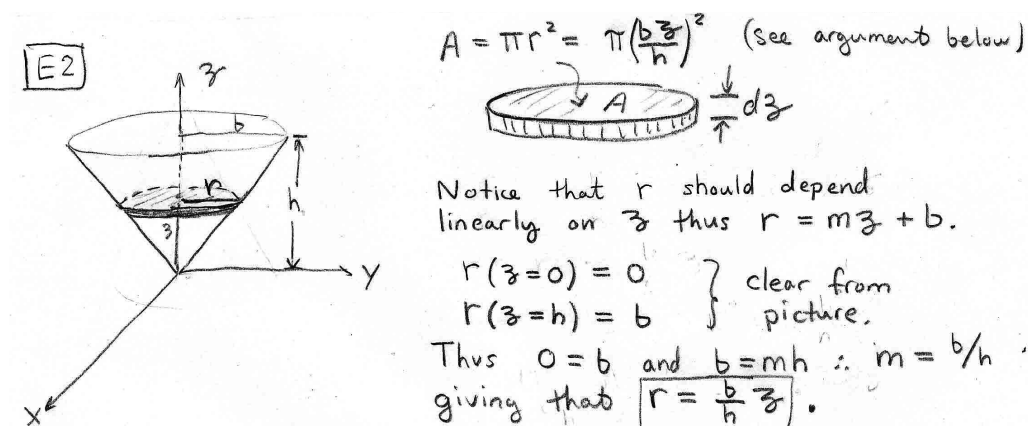 E2
z
b
r
h
z
y
x
A = πr² = π(bz/h)² (see argument below)
A
dz
Notice that r should depend
linearly on z thus r = mz + b.
r(z=0) = 0
r(z=h) = b
} clear from
picture.
Thus 0 = b and b = mh ∴ m = b/h
giving that r = b/h z.